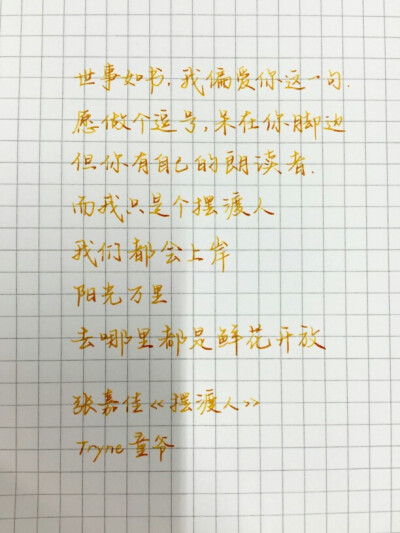 世事如书,我偏爱你这一句.
愿做个逗号,呆在你脚边
但你有自己的朗读者.
而我只是个摆渡人
我们都会上岸
阳光万里
去哪里都是鲜花开放
张嘉佳《摆渡人》
Tryne童爷